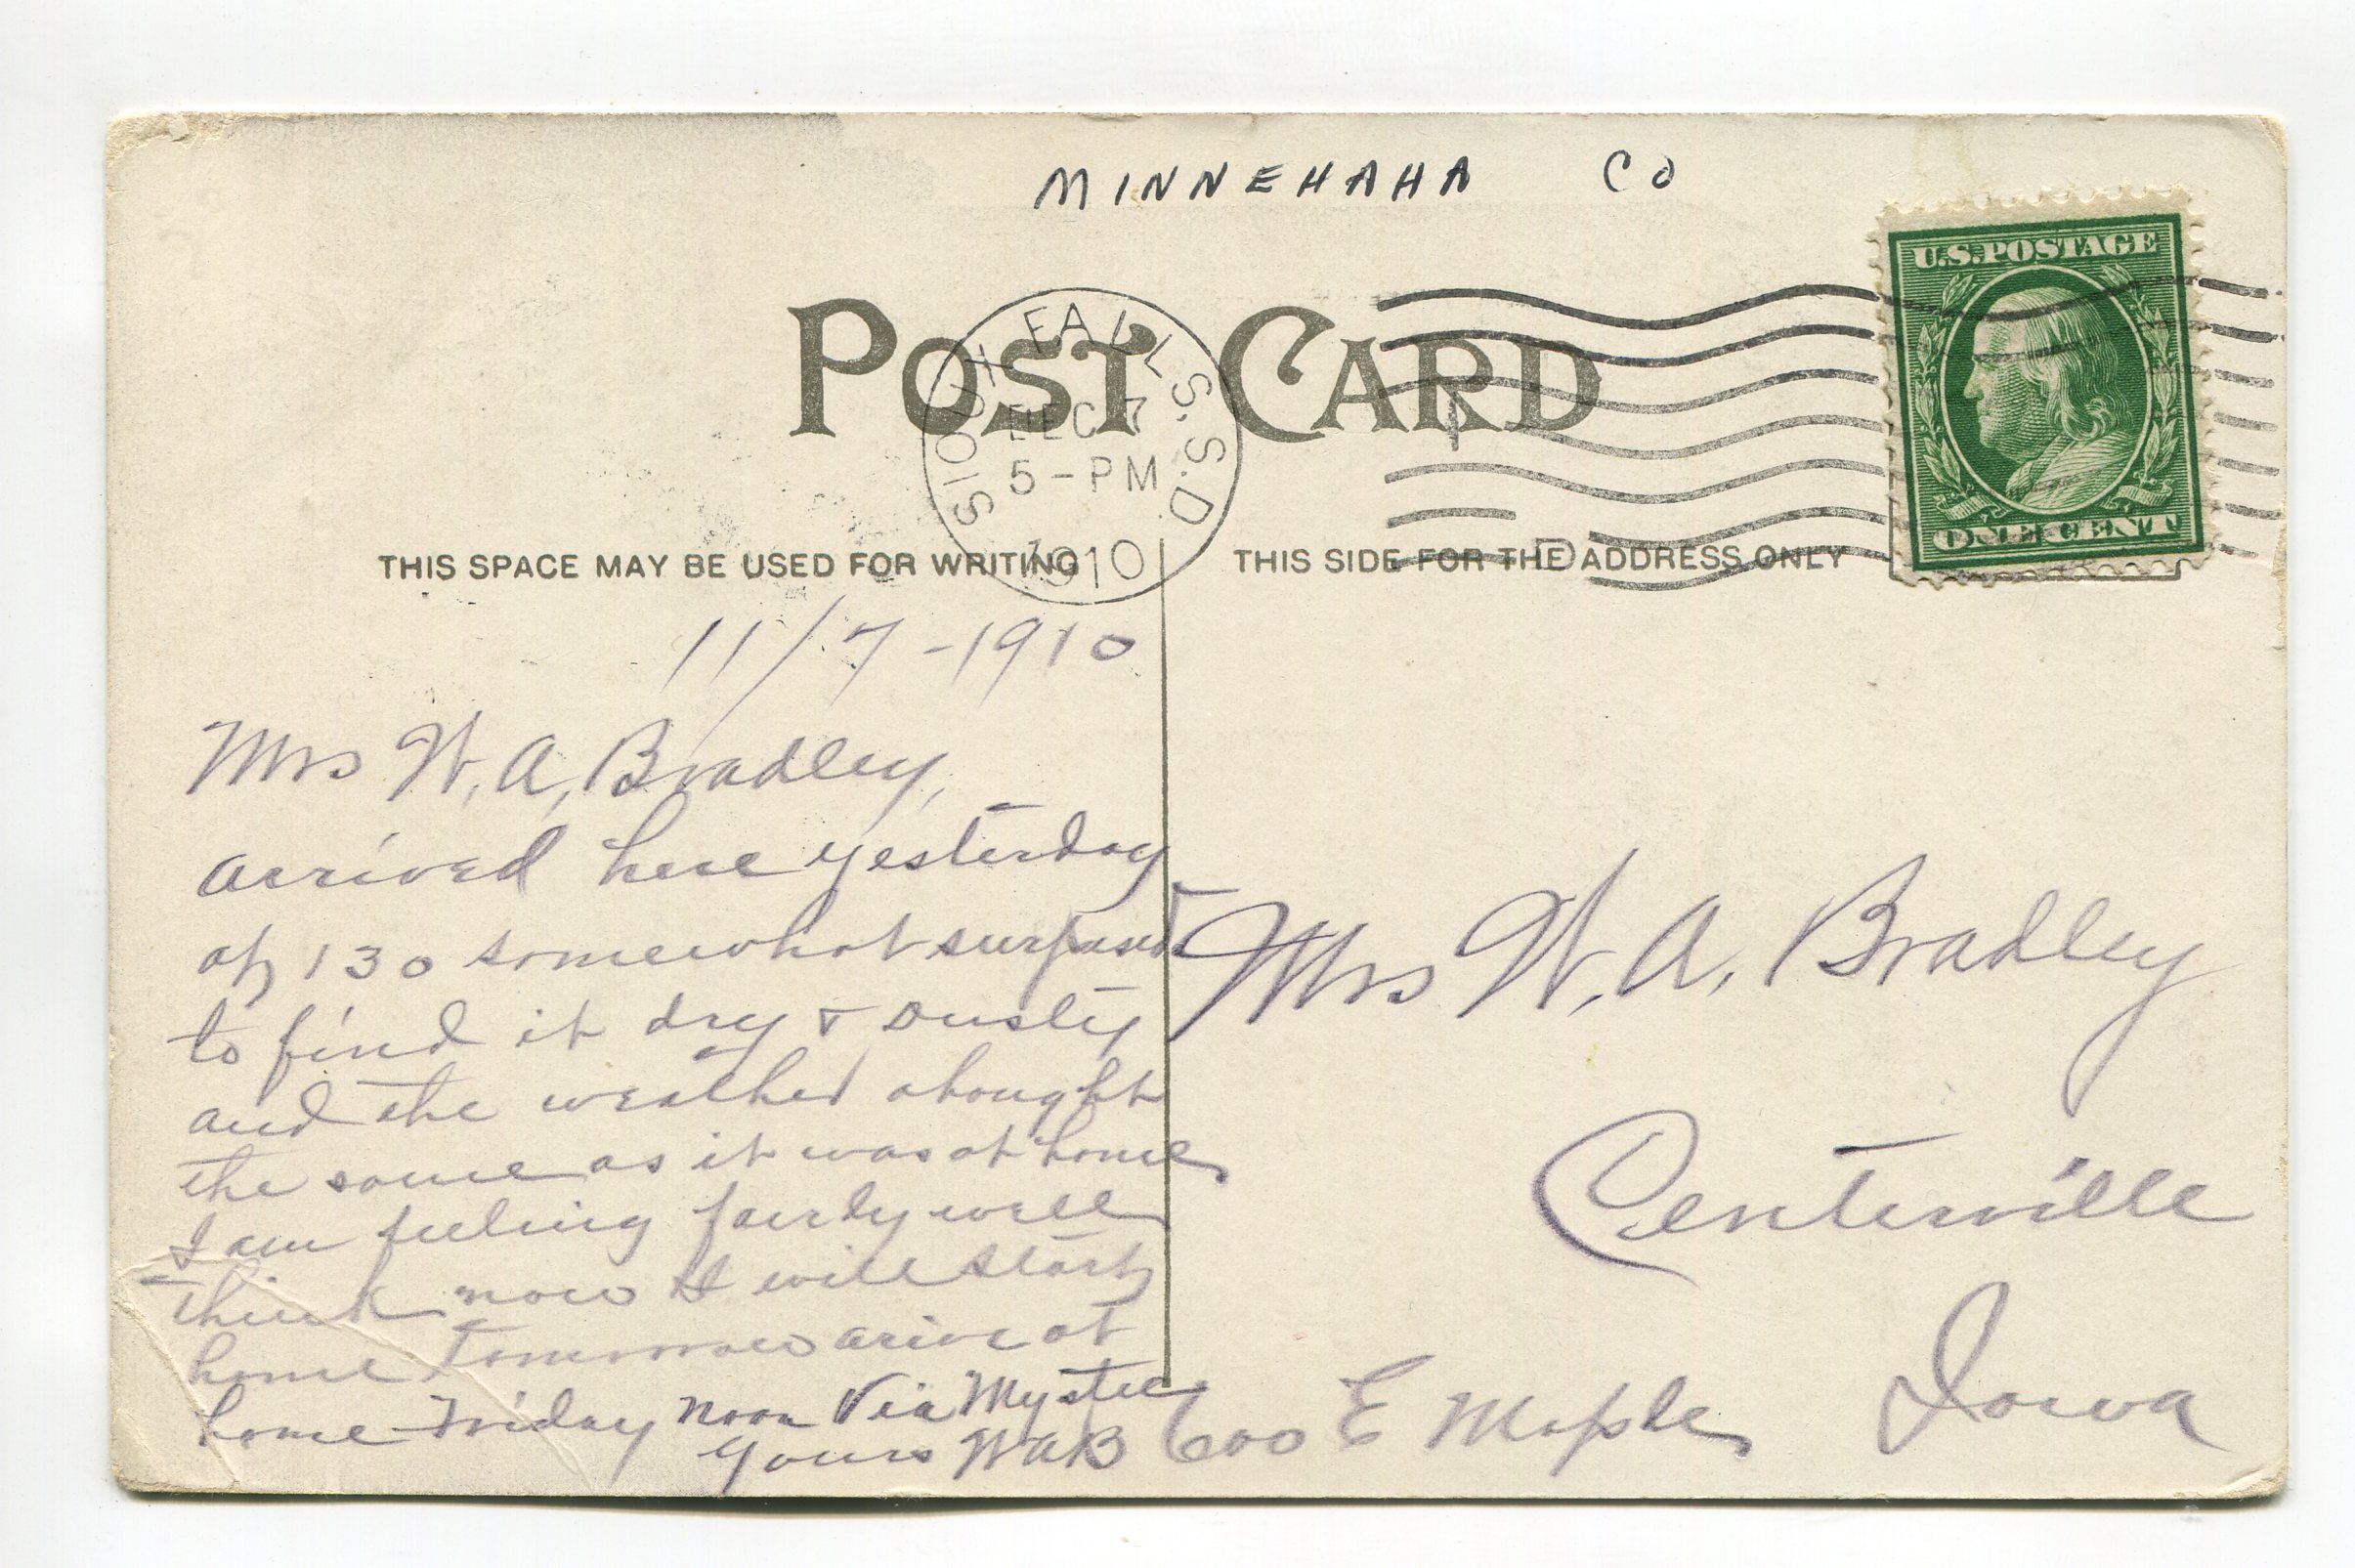 MINNEHAHA CO
U.S. POSTAGE
ONE CENT
POST CARD
SIOUX FALLS. S.D.
DEC 7
5-PM
1910
THIS SPACE MAY BE USED FOR WRITING
THIS SIDE FOR THE ADDRESS ONLY
11/7-1910
Mrs W. A, Bradley,
arrived here yesterday
at 130 somewhat surprised
to find it dry & Dusty
and the weather
the same as it was at home,
I am feeling fairly well
think now I will start
home tomorrow arive at
home Friday noon Via Mystic
yours WAB
Mrs W. A. Bradley
Centerville
Iowa
600 E Maple